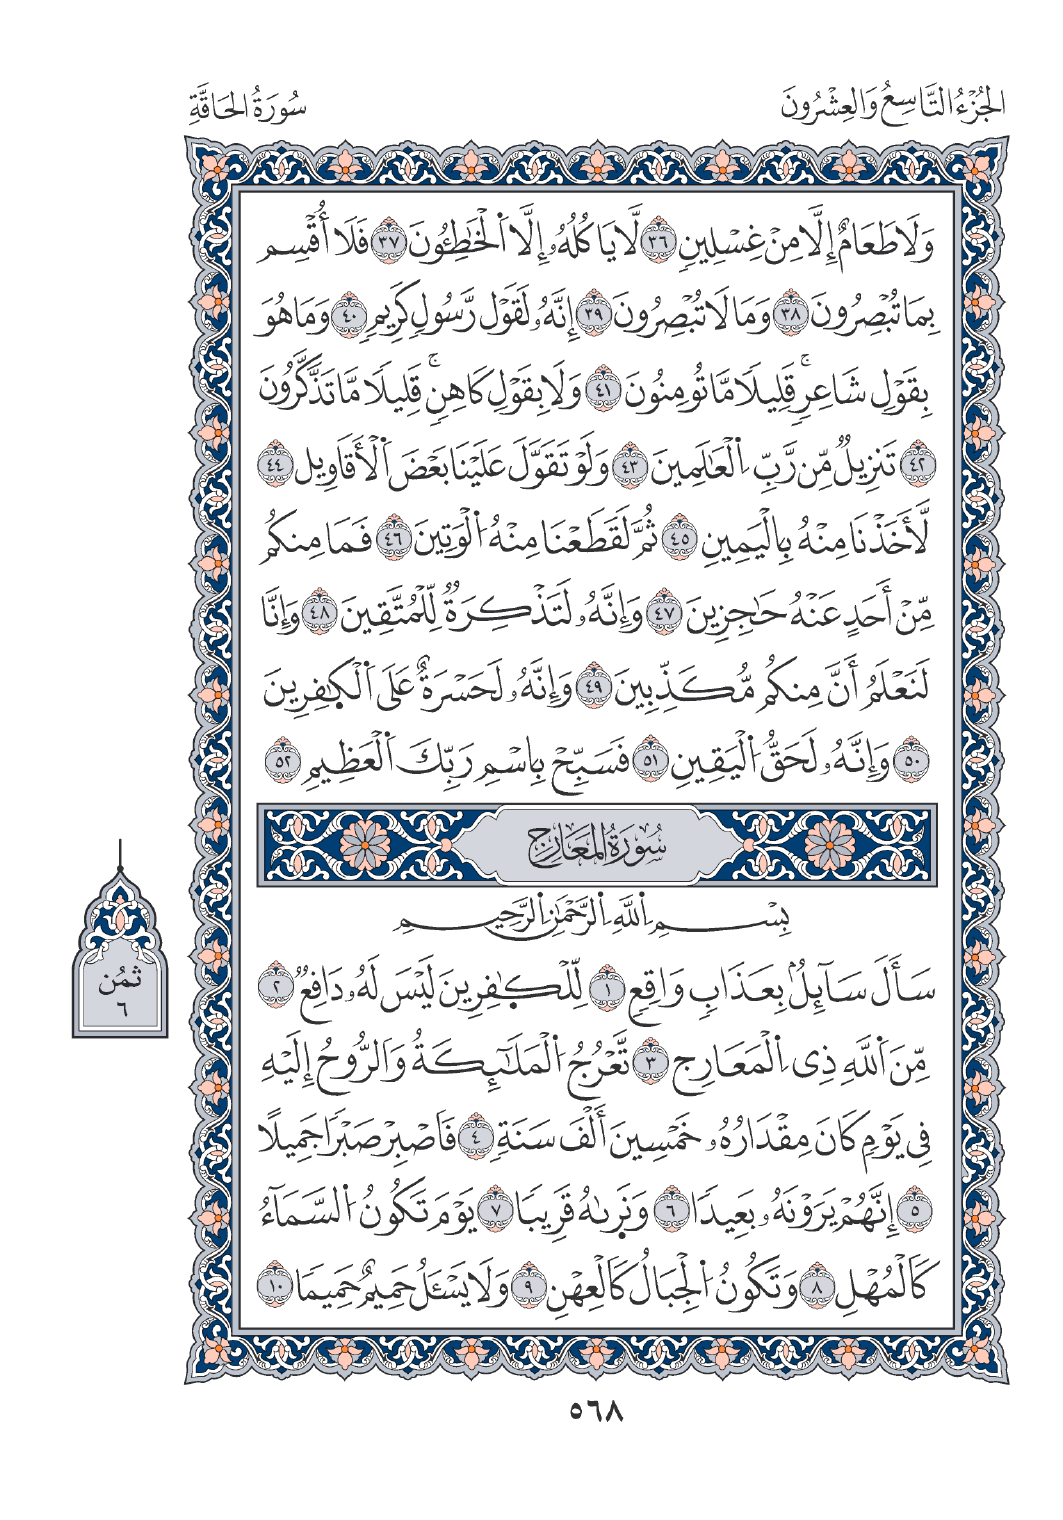 الجُزْءُ التَّاسِعُ وَالعِشْرُونَ
سُورَةُ الحَاقَّةِ
وَلَا طَعَامٌ إِلَّا مِنْ غِسْلِينٖ ٣٦ لَّا يَاكُلُهُۥ إِلَّا اَ۬لْخَٰطِـُٔونَ ٣٧ فَلَا أُقْسِم
بِمَا تُبْصِرُونَ ٣٨ وَمَا لَا تُبْصِرُونَ ٣٩ إِنَّهُۥ لَقَوْل رَّسُولٖ كَرِيمٖ ٤٠ وَمَا هُوَ
بِقَوْلِ شَاعِرٖۚ قَلِيلٗا مَّا تُومِنُونَ ٤١ وَلَا بِقَوْلِ كَاهِنٖۚ قَلِيلٗا مَّا تَذَّكَّرُونَ
٤٢ تَنزِيلٞ مِّن رَّبِّ اِ۬لْعَٰلَمِينَ ٤٣ وَلَوْ تَقَوَّلَ عَلَيْنَا بَعْضَ اَ۬لْأَقَاوِيل ٤٤
لَّأَخَذْنَا مِنْهُ بِالْيَمِينِ ٤٥ ثُمَّ لَقَطَعْنَا مِنْهُ اُ۬لْوَتِينَ ٤٦ فَمَا مِنكُم
مِّنْ أَحَدٍ عَنْهُ حَٰجِزِينَ ٤٧ وَإِنَّهُۥ لَتَذْكِرَةٞ لِّلْمُتَّقِينَ ٤٨ وَإِنَّا
لَنَعْلَمُ أَنَّ مِنكُم مُّكَذِّبِينَ ٤٩ وَإِنَّهُۥ لَحَسْرَةٌ عَلَى اَ۬لْكٰ۪فِرِينَ
٥٠ وَإِنَّهُۥ لَحَقُّ اُ۬لْيَقِينِ ٥١ فَسَبِّحْ بِاسْمِ رَبِّكَ اَ۬لْعَظِيمِ ٥٢
سُورَةُ المَعَارِجِ
بِسْمِ اِ۬للَّهِ اِ۬لرَّحْمَٰنِ اِ۬لرَّحِيمِ
سَأَلَ سَآئِلُۢ بِعَذَابٖ وَاقِعٖ ١ لِّلْكٰ۪فِرِينَ لَيْسَ لَهُۥ دَافِعٞ ٢
مِّنَ اَ۬للَّهِ ذِى اِ۬لْمَعَارِج ٣ تَّعْرُجُ اُ۬لْمَلَٰٓئِكَةُ وَالرُّوحُ إِلَيْهِ
فِي يَوْمٖ كَانَ مِقْدَارُهُۥ خَمْسِينَ أَلْفَ سَنَةٖ ٤ فَاصْبِرْ صَبْرٗا جَمِيلًا
٥ إِنَّهُمْ يَرَوْنَهُۥ بَعِيدٗا ٦ وَنَر۪ىٰهُ قَرِيبٗا ٧ يَوْمَ تَكُونُ اُ۬لسَّمَآءُ
كَالْمُهْلِ ٨ وَتَكُونُ اُ۬لْجِبَالُ كَالْعِهْنِ ٩ وَلَا يَسْـَٔلُ حَمِيمٌ حَمِيمٗا ١٠
ثُمُن
٦
٥٦٨